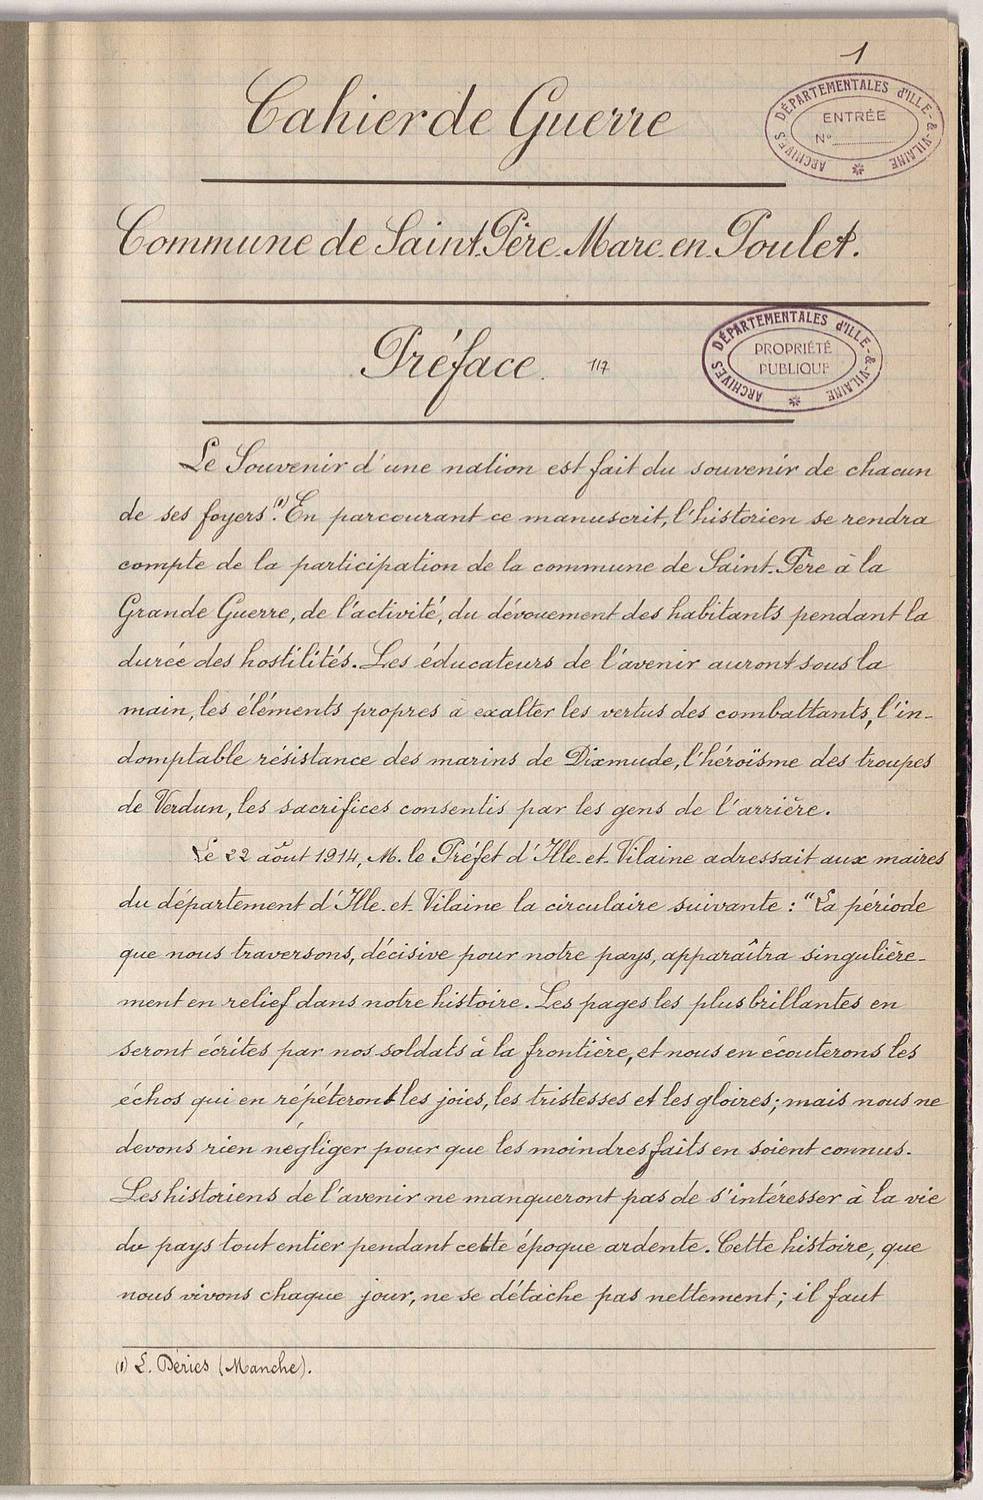 1
Cahier de Guerre
ARCHIVES DÉPARTEMENTALES d'ILLE-&-VILAINE
ENTRÉE
N°
Commune de Saint-Père-Marc-en-Poulet.
Préface 117
ARCHIVES DÉPARTEMENTALES d'ILLE-&-VILAINE
PROPRIÉTÉ
PUBLIQUE
Le Souvenir d'une nation est fait du souvenir de chacun
de ses foyers (1). En parcourant ce manuscrit, l'historien se rendra
compte de la participation de la commune de Saint-Père à la
Grande Guerre, de l'activité, du dévouement des habitants pendant la
durée des hostilités. Les éducateurs de l'avenir auront sous la
main, les éléments propres à exalter les vertus des combattants, l'in-
domptable résistance des marins de Dixmude, l'héroïsme des troupes
de Verdun, les sacrifices consentis par les gens de l'arrière.
Le 22 août 1914, M. le Préfet d'Ille-et-Vilaine adressait aux maires
du département d'Ille-et-Vilaine la circulaire suivante : "La période
que nous traversons, décisive pour notre pays, apparaîtra singulière-
ment en relief dans notre histoire. Les pages les plus brillantes en
seront écrites par nos soldats à la frontière, et nous en écouterons les
échos qui en répéteront les joies, les tristesses et les gloires; mais nous ne
devons rien négliger pour que les moindres faits en soient connus.
Les historiens de l'avenir ne manqueront pas de s'intéresser à la vie
du pays tout entier pendant cette époque ardente. Cette histoire, que
nous vivons chaque jour, ne se détache pas nettement; il faut
(1) L. Déries (Manche).